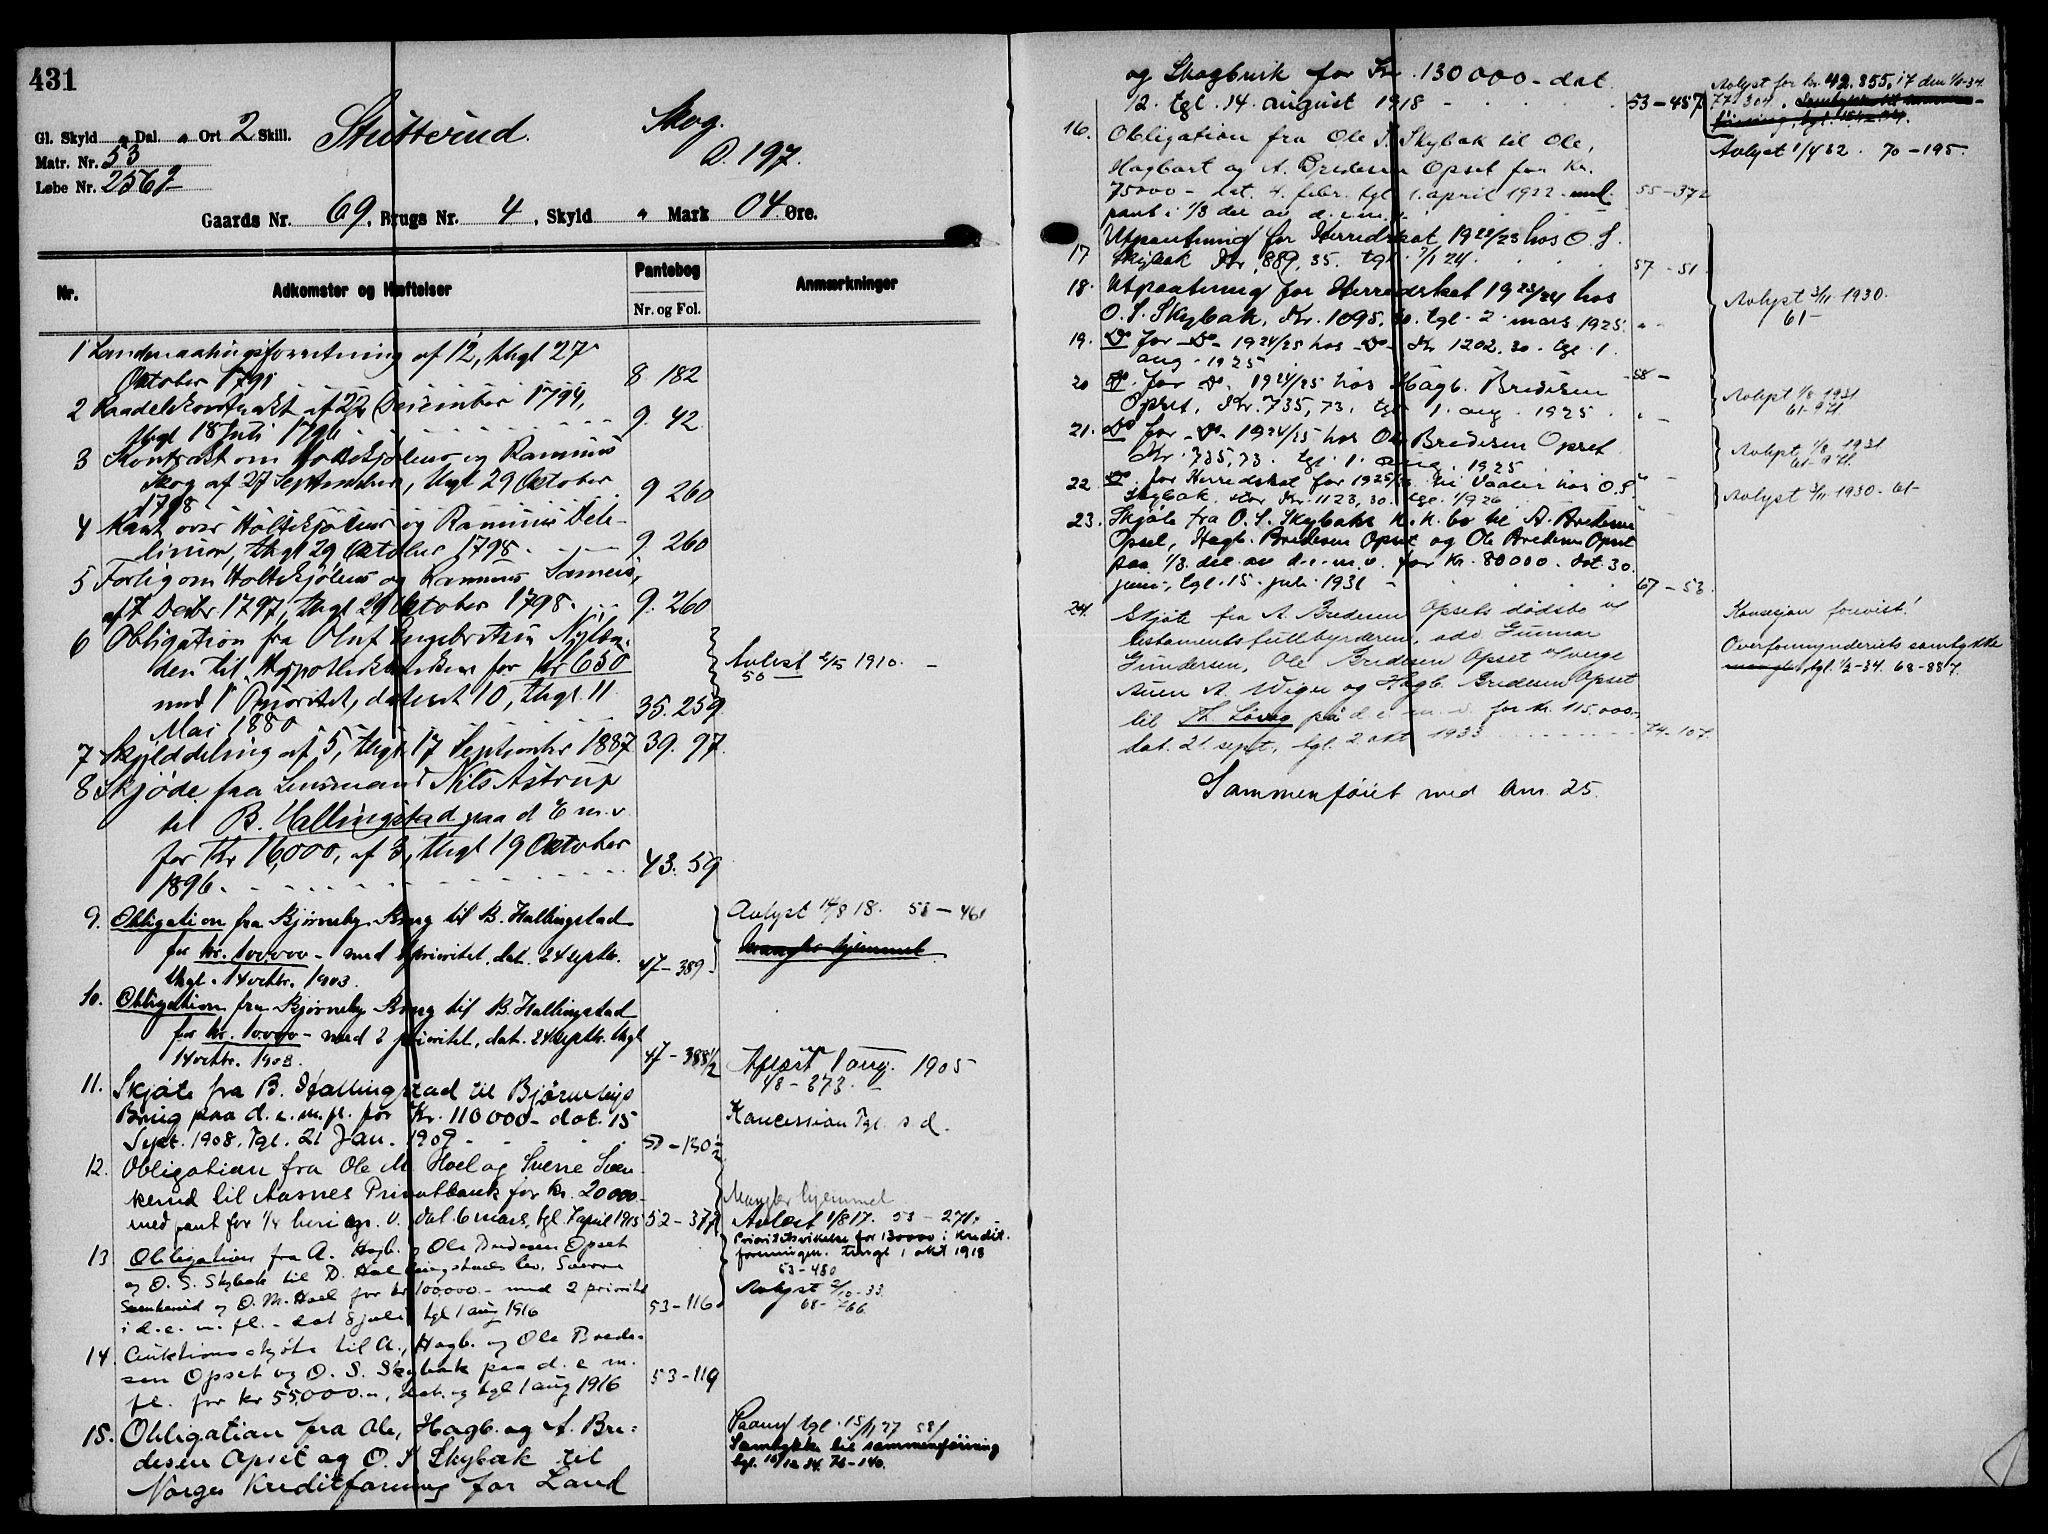 431
Gl. Skyld " Dal. " Ort 2 Skill.
Stutterud.
Skog.
D. 197.
Matr. Nr. 53
Løbe Nr. 256
Gaards Nr. 69, Brugs Nr. 4, Skyld " Mark 04 Øre.
Nr.
Adkomster og Hæftelser
Pantebog
Nr. og Fol.
Anmærkninger
1 af 12, thgl 27
Oktober 1791 8. 182
2 af 22 December 1794,
thgl 18 Juli 1796 9. 42
3 Kontrakt om Holtekjølens og Rammus
Skog af 27 September, thgl 29 Oktober
1798 9 260
4 Kart over Holtekjølens og Rammus Dele-
linier, thgl 29 Oktober 1798. 9. 260
5 Forlig om Holtekjølens og Rammus Sameie,
af 7 Decbr 1797, thgl 29 Oktober 1798. 9. 260
6 Obligation fra Oluf Engebretsen Nylæn-
den til Hypothekbanken for Kr 650
med 1 Prioritet, dateret 10, thgl. 11
Mai 1880 35. 259
Avlyst 2/5 1910. -
50
7 Skylddeling af 5, thgl. 17 September 1887 39. 97.
8 Skjøde fra Lensmand Nils Astrup
til B. Hallingstad paa d E m. v
for Kr 16,000, af 3, thgl 19 Oktober
1896. 43. 59
9. Obligation fra Bjørneby Brug til B. Hallingstad
for kr. 100.000 - med 1 prioritet, dat. 24 septbr.
thgl. 14 octbr. 1903. 47-389
Avlyst 14/8 18. 53-461
Mangler hjemmel.
10. Obligation fra Bjørneby Brug til B. Hallingstad
for kr. 10.000 - med 2 prioritet, dat. 24 septbr. thgl
14 octbr. 1903. 47-388 1/2
Aflæst 1 aug. 1905
48-273.
11. Skjøte fra B. Hallingstad til Bjørnebys
Brug paa d. e. m. fl. for Kr. 110000 - dat. 15
Sept. 1908. Tgl. 21 Jan. 1909 50-130 1/2
Koncession Tgl. s d.
12. Obligation fra Ole M. Hoel og Sverre Sven-
kerud til Aasnes Privatbank for Kr. 20000-
med pant for 1/4 heri og. v. dat. 6 mars, tgl 7 april 1915 52-377
Mangler hjemmel
Avlæst 1/8 17. 53-271.
13. Obligation fra A. Hagb. og Ole Bredesen Opset
og O. S. Skybak til D. Hallingstads bo, Sverre
Svenkerud og O. M. Hoel for kr 100000 - med 2 prioritet
i d. e. m. fl. - dat 5 juli tgl 1 aug 1916 53-116
Prioritetsvikelse for 130000 i Kredit-
foreningen. tingl 1 okt 1918
53-480
Avlyst 2/10-33.
68-766.
14. Auktionsskjøte til A., Hagb. og Ole Brede-
sen Opset og O. S. Skybak paa d. e m.
fl. for kr 55,000.-, dat. og tgl 1 aug 1916 53-119
15. Obligation fra Ole, Hagb. og A. Bre-
desen Opset og O. S Skybak til
Norges Kreditforening for Land
tgl. 15/11 27 58/
Samtykke til sammenføining
tgl. 15/12 34. 76-140.
og Skogbruk for Kr. 130000 - dat.
12. tgl. 14. august 1918 - 53-457
Avlyst for kr. 42.855,17 den
77-304.
16. Obligation fra Ole S. Skybak til Ole,
Hagbart og A. Bredesen Opset for Kr.
75000 - dat. 4. febr. tgl 1. april 1922 - med
pant i 1/3 del av d. e. m. v. 55-372
Avlyst 1/4 32. 70-195.
17 Utpantning for Herredskat 1922/23 hos O S.
Skybak Kr. 889,35. tgl. 7/1 24. 57-51
18. Utpantning for Herredskat 1923/24 hos
O. S. Skybak, Kr. 1095,30. tgl. 2. mars 1925. " -
Avlyst 3/11 1930.
61-
19. Do for -Do- 1924/25 hos -Do- Kr 1202.30. tgl. 1.
aug. 1925 58-
20 Do. for Do. 1924/25 hos Hagb. Bredesen
Opset, Kr. 735,73. tgl 1. aug. 1925 " -
Avlyst 1/8 1931
61-971
21. Do for -Do- 1924/25 hos Ole Bredesen Opset
Kr. 735,73. tgl. 1. aug. 1925 " -
Avlyst 1/8 1931
61-971.
22 Do. for Herredskat for 1925/26 til Vaaler hos O. S.
Skybak, stor Kr. 1123,30. tgl. 1/9 26 " -
Avlyst 3/11 1930. 61-
23. Skjøte fra O. S. Skybaks k. k. bo til A. Bredesen
Opset, Hagb. Bredesen Opset og Ole Bredesen Opset
paa 1/3 del av d. e. m. v. for Kr. 80000. dat. 30.
juni, tgl. 15. juli 1931 - 67-53.
24. Skjøte fra A Bredesen Opsets dødsbo v/
testamentsfullbyrderen, adv. Gunnar
Gundersen, Ole Bredesen Opset v/verge
A. Wiger og Hagb. Bredesen Opset
til Th. Løvig på d. e. m. v. for kr. 115.000.-
dat. 21. sept, tgl. 2. okt 1933 74-107.
Konsesjon forevist!
Overformynderiets samtykke
mangler, tgl. 1/3-34. 68-887.
Sammenføiet med bnr. 25.